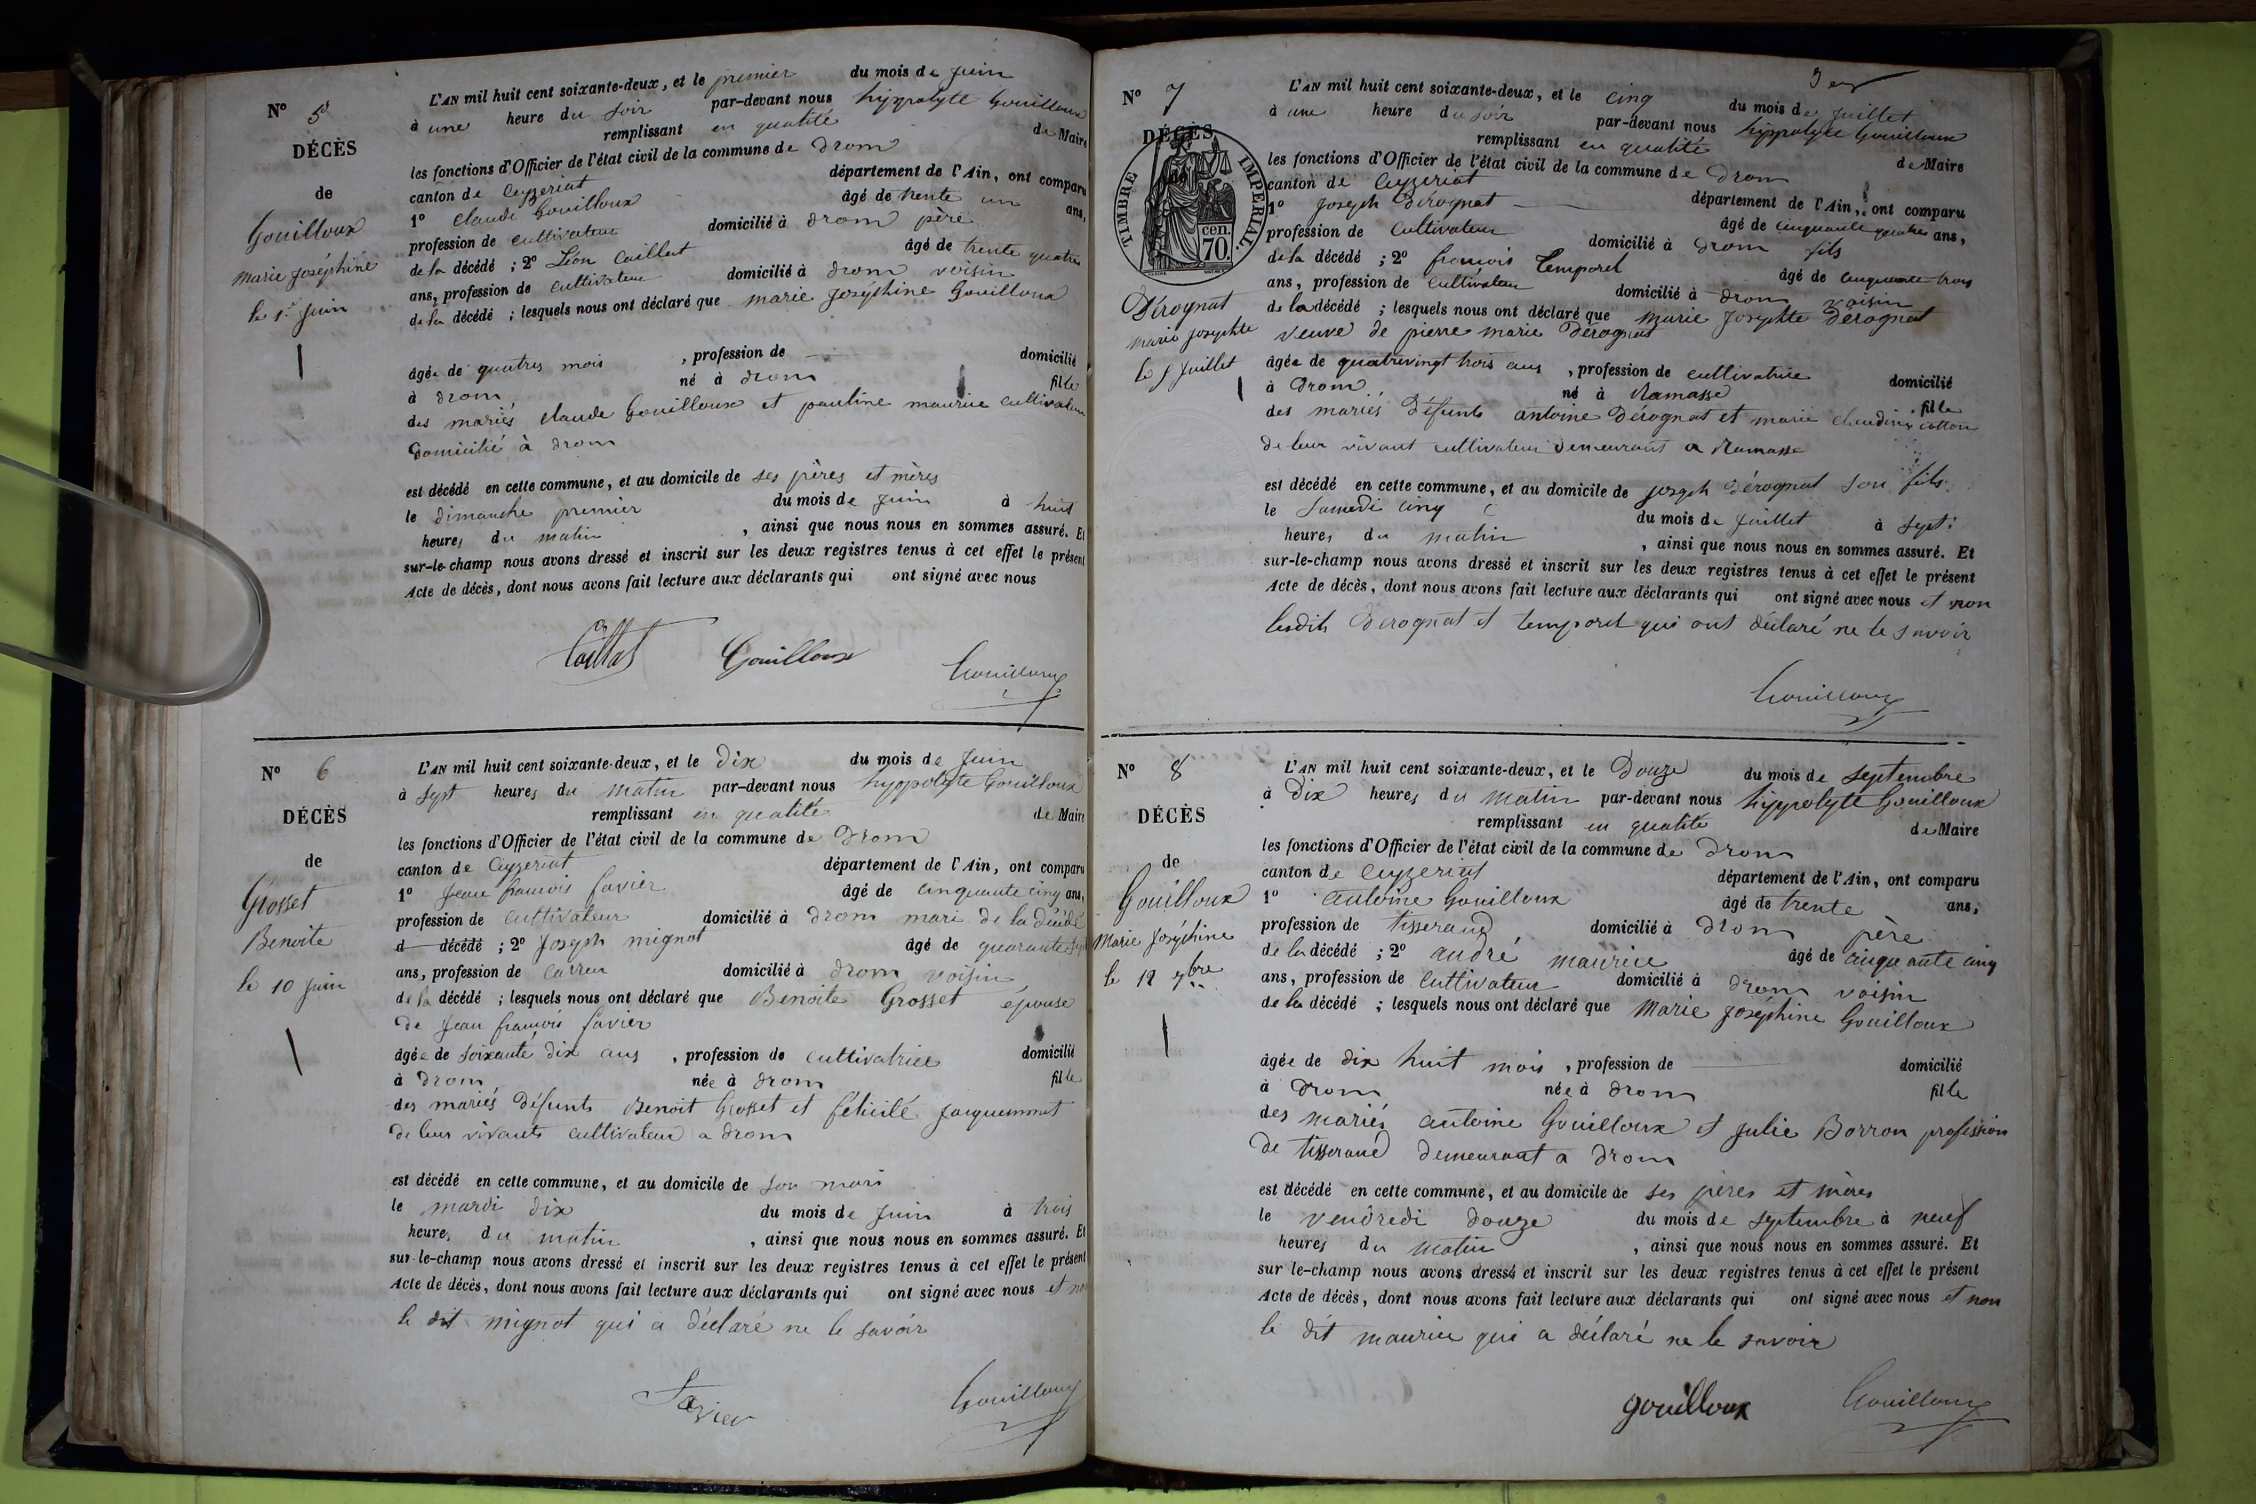 N° 5
DÉCÈS
de
Gouilloux
marie joséphine
le 1er juin
L'AN mil huit cent soixante-deux, et le premier du mois de juin
à une heure du soir par-devant nous hippolyte Gouilloux
remplissant en qualité de Maire
les fonctions d'Officier de l'état civil de la commune de Drom
canton de Ceyzeriat département de l'Ain, ont comparu
1° Claude Gouilloux âgé de trente un ans,
profession de cultivateur domicilié à drom père
de la décédé ; 2° Léon Caillat âgé de trente quatre
ans, profession de cultivateur domicilié à drom voisin
de la décédé ; lesquels nous ont déclaré que marie joséphine Gouilloux
âgée de quatres mois , profession de domicilié
à drom né à drom fille
des mariés claude Gouilloux et pauline maurice cultivateur
Domicilié à drom
est décédé en cette commune, et au domicile de ses pères et mères
le dimanche premier du mois de juin à huit
heures du matin , ainsi que nous nous en sommes assuré. Et
sur-le-champ nous avons dressé et inscrit sur les deux registres tenus à cet effet le présent
Acte de décès, dont nous avons fait lecture aux déclarants qui ont signé avec nous
Caillat Gouilloux Gouilloux
N° 6
DÉCÈS
de
Grosset
Benoite
le 10 juin
L'AN mil huit cent soixante-deux, et le Dix du mois de juin
à sept heures du matin par-devant nous hyppolyte Gouilloux
remplissant en qualité de Maire
les fonctions d'Officier de l'état civil de la commune de Drom
canton de Ceyzeriat département de l'Ain, ont comparu
1° Jean françois favier âgé de cinquante cinq ans,
profession de cultivateur domicilié à drom mari de la décédé
d décédé ; 2° Joseph mignot âgé de quarante sept
ans, profession de domicilié à drom voisin
de la décédé ; lesquels nous ont déclaré que Benoite Grosset épouse
de Jean françois favier
âgée de soixante dix ans , profession de cultivatrice domicilié
à Drom née à drom fille
des mariés défunts Benoit Grosset et félicité Jacquemmet
de leurs vivants cultivateur a drom
est décédé en cette commune, et au domicile de son mari
le mardi dix du mois de juin à trois
heures du matin , ainsi que nous nous en sommes assuré. Et
sur-le-champ nous avons dressé et inscrit sur les deux registres tenus à cet effet le présent
Acte de décès, dont nous avons fait lecture aux déclarants qui ont signé avec nous et non
le dit mignot qui a déclaré ne le savoir
Favier Gouilloux
N° 7
DÉCÈS
de
TIMBRE IMPÉRIAL.
70 cen.
Dérognat
marie josephte
le 5 juillet
L'AN mil huit cent soixante-deux, et le cinq du mois de juillet
à une heure du soir par-devant nous hippolyte Gouilloux
remplissant en qualité de Maire
les fonctions d'Officier de l'état civil de la commune de Drom
canton de Ceyzeriat département de l'Ain, ont comparu
1° Joseph Dérognat âgé de cinquante quatre ans,
profession de cultivateur domicilié à Drom fils
de la décédé ; 2° françois Temporel âgé de cinquante trois
ans, profession de cultivateur domicilié à drom voisin
de la décédé ; lesquels nous ont déclaré que marie Josephte Dérognat
veuve de pierre marie Dérognat
âgée de quatrevingt trois ans , profession de cultivatrice domicilié
à Drom né à Ramasse fille
des mariés défunts antoine Dérognat et marie claudine cotton
de leur vivant cultivateur Demeurant a Ramasse
est décédé en cette commune, et au domicile de joseph Dérognat son fils
le samedi cinq du mois de juillet à sept
heures du matin , ainsi que nous nous en sommes assuré. Et
sur-le-champ nous avons dressé et inscrit sur les deux registres tenus à cet effet le présent
Acte de décès, dont nous avons fait lecture aux déclarants qui ont signé avec nous et non
lesdits Dérognat et temporel qui ont déclaré ne le savoir
Gouilloux
N° 8
DÉCÈS
de
Gouilloux
Marie Joséphine
le 12 7bre
L'AN mil huit cent soixante-deux, et le Douze du mois de septembre
à Dix heures du matin par-devant nous hippolyte Gouilloux
remplissant en qualité de Maire
les fonctions d'Officier de l'état civil de la commune de Drom
canton de Ceyzeriat département de l'Ain, ont comparu
1° antoine Gouilloux âgé de trente ans,
profession de tisserand domicilié à Drom père
de la décédé ; 2° andré maurice âgé de cinquante cinq
ans, profession de cultivateur domicilié à drom voisin
de la décédé ; lesquels nous ont déclaré que Marie Joséphine Gouilloux
âgée de dix huit mois , profession de domicilié
à Drom née à drom fille
des mariés antoine Gouilloux et julie Borron profession
de tisserand Demeurant a Drom
est décédé en cette commune, et au domicile de ses pères et mères
le vendredi douze du mois de septembre à neuf
heures du matin , ainsi que nous nous en sommes assuré. Et
sur le-champ nous avons dressé et inscrit sur les deux registres tenus à cet effet le présent
Acte de décès, dont nous avons fait lecture aux déclarants qui ont signé avec nous et non
le dit maurice qui a déclaré ne le savoir
gouilloux Gouilloux